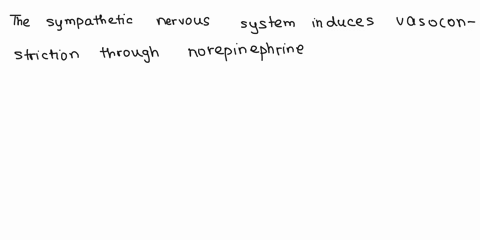 The sympathetic nervous system induces vasocon-
striction through norepinephrine